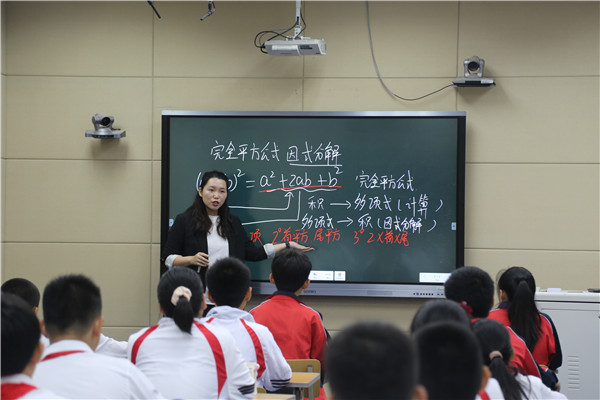 完全平方公式 因式分解
)² = a²+2ab+b² 完全平方公式
积 → 多项式 (计算)
多项式 → 积 (因式分解)
项 2° 首平方 尾平方 3° 2×首×尾